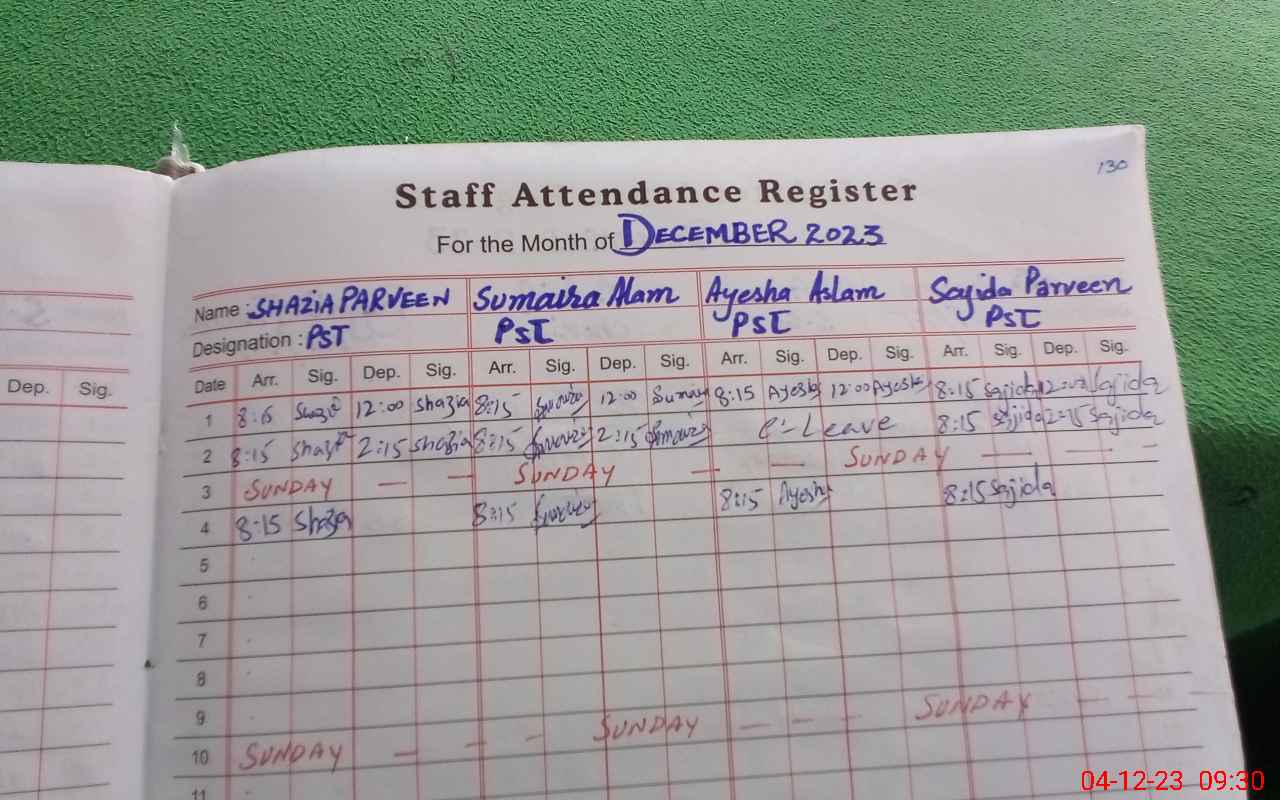 130
Staff Attendance Register
For the Month of DECEMBER 2023
Name : SHAZIA PARVEEN Sumaira Alam Ayesha Aslam Sajida Parveen
Designation : PST PST PST PST
Dep. Sig.
Date Arr. Sig. Dep. Sig. Arr. Sig. Dep. Sig. Arr. Sig. Dep. Sig. Arr. Sig. Dep. Sig.
1 12:00 Shazia 8:15 12:00 8:15 Ayesha 12:00 Ayesha 8:15 Sajida Sajida
2 8:15 2:15 Shazia 8:15 2:15 C-Leave 8:15 Sajida 2:15 Sajida
3 SUNDAY — — SUNDAY — — SUNDAY — — —
4 8:15 Shazia 8:15 8:15 Ayesha 8:15 Sajida
5
6
7
8
9
10 SUNDAY — — — SUNDAY — — — SUNDAY — — —
11
04-12-23 09:30